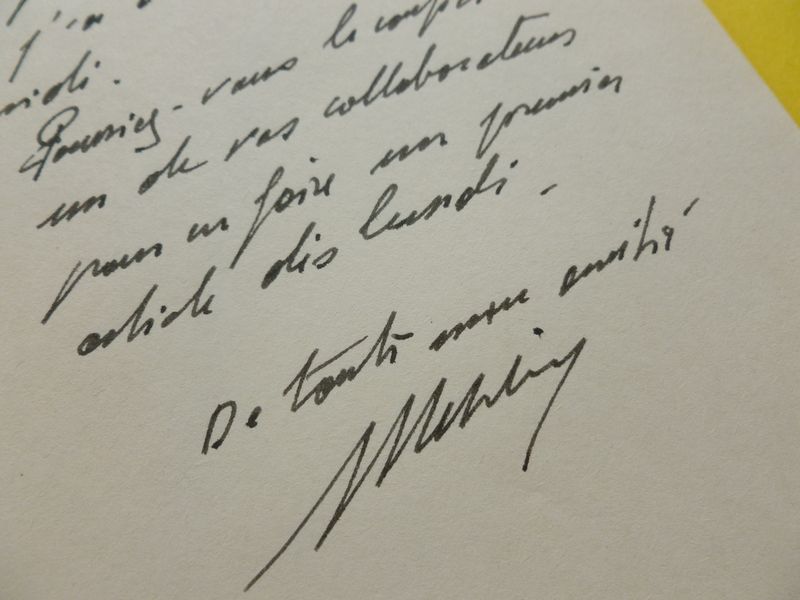 j'ai
midi.
Pourriez-vous le confier
un de vos collaborateurs
pour en faire un premier
article dès lundi.
De toute mon amitié